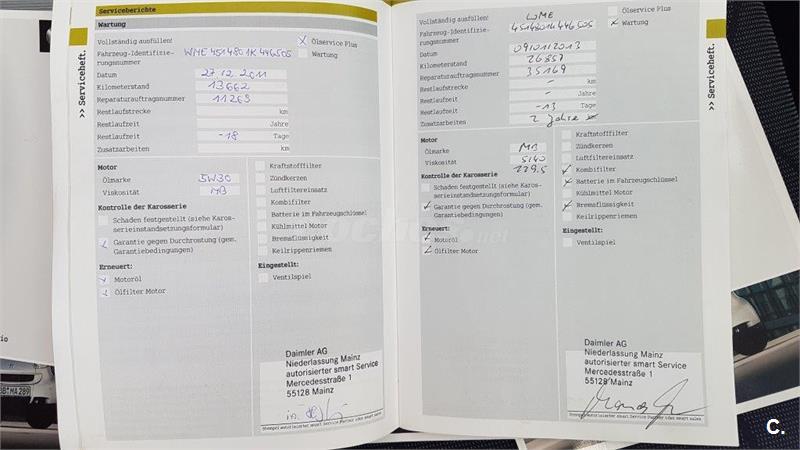 Serviceberichte
Wartung
Vollständig ausfüllen!
x Ölservice Plus
Fahrzeug-Identifizie-
rungsnummer
WME4514801K446505
Wartung
Datum 27.12.2011
Kilometerstand 13662
Reparaturauftragsnummer 11263
Restlaufstrecke km
Restlaufzeit Jahre
Restlaufzeit -18 Tage
Zusatzarbeiten
Motor
Ölmarke 5W30
Viskosität MB
Kontrolle der Karosserie
Schaden festgestellt (siehe Karos-
serieinstandsetzungsformular)
Garantie gegen Durchrostung (gem.
Garantiebedingungen)
Erneuert:
Motoröl
Ölfilter Motor
Kraftstofffilter
Zündkerzen
Luftfiltereinsatz
Kombifilter
Batterie im Fahrzeugschlüssel
Kühlmittel Motor
Bremsflüssigkeit
Keilrippenriemen
Eingestellt:
Ventilspiel
Daimler AG
Niederlassung Mainz
autorisierter smart Service
Mercedesstraße 1
55128 Mainz
Stempel autorisierter smart Service Partner oder smart center
>> Serviceheft.
Vollständig ausfüllen!
Ölservice Plus
Fahrzeug-Identifizie-
rungsnummer
WME
4514801K446505
x Wartung
Datum 09/01/2013
Kilometerstand 26857
Reparaturauftragsnummer 35169
Restlaufstrecke - km
Restlaufzeit - Jahre
Restlaufzeit -13 Tage
Zusatzarbeiten 2 Jahre
Motor
Ölmarke MB
Viskosität 5W40
229.5
Kontrolle der Karosserie
Schaden festgestellt (siehe Karos-
serieinstandsetzungsformular)
Garantie gegen Durchrostung (gem.
Garantiebedingungen)
Erneuert:
Motoröl
Ölfilter Motor
Kraftstofffilter
Zündkerzen
Luftfiltereinsatz
Kombifilter
Batterie im Fahrzeugschlüssel
Kühlmittel Motor
Bremsflüssigkeit
Keilrippenriemen
Eingestellt:
Ventilspiel
Daimler AG
Niederlassung Mainz
autorisierter smart Service
Mercedesstraße 1
55128 Mainz
Stempel autorisierter smart Service Partner oder smart center
>> Serviceheft.
BB·MA 289
C.